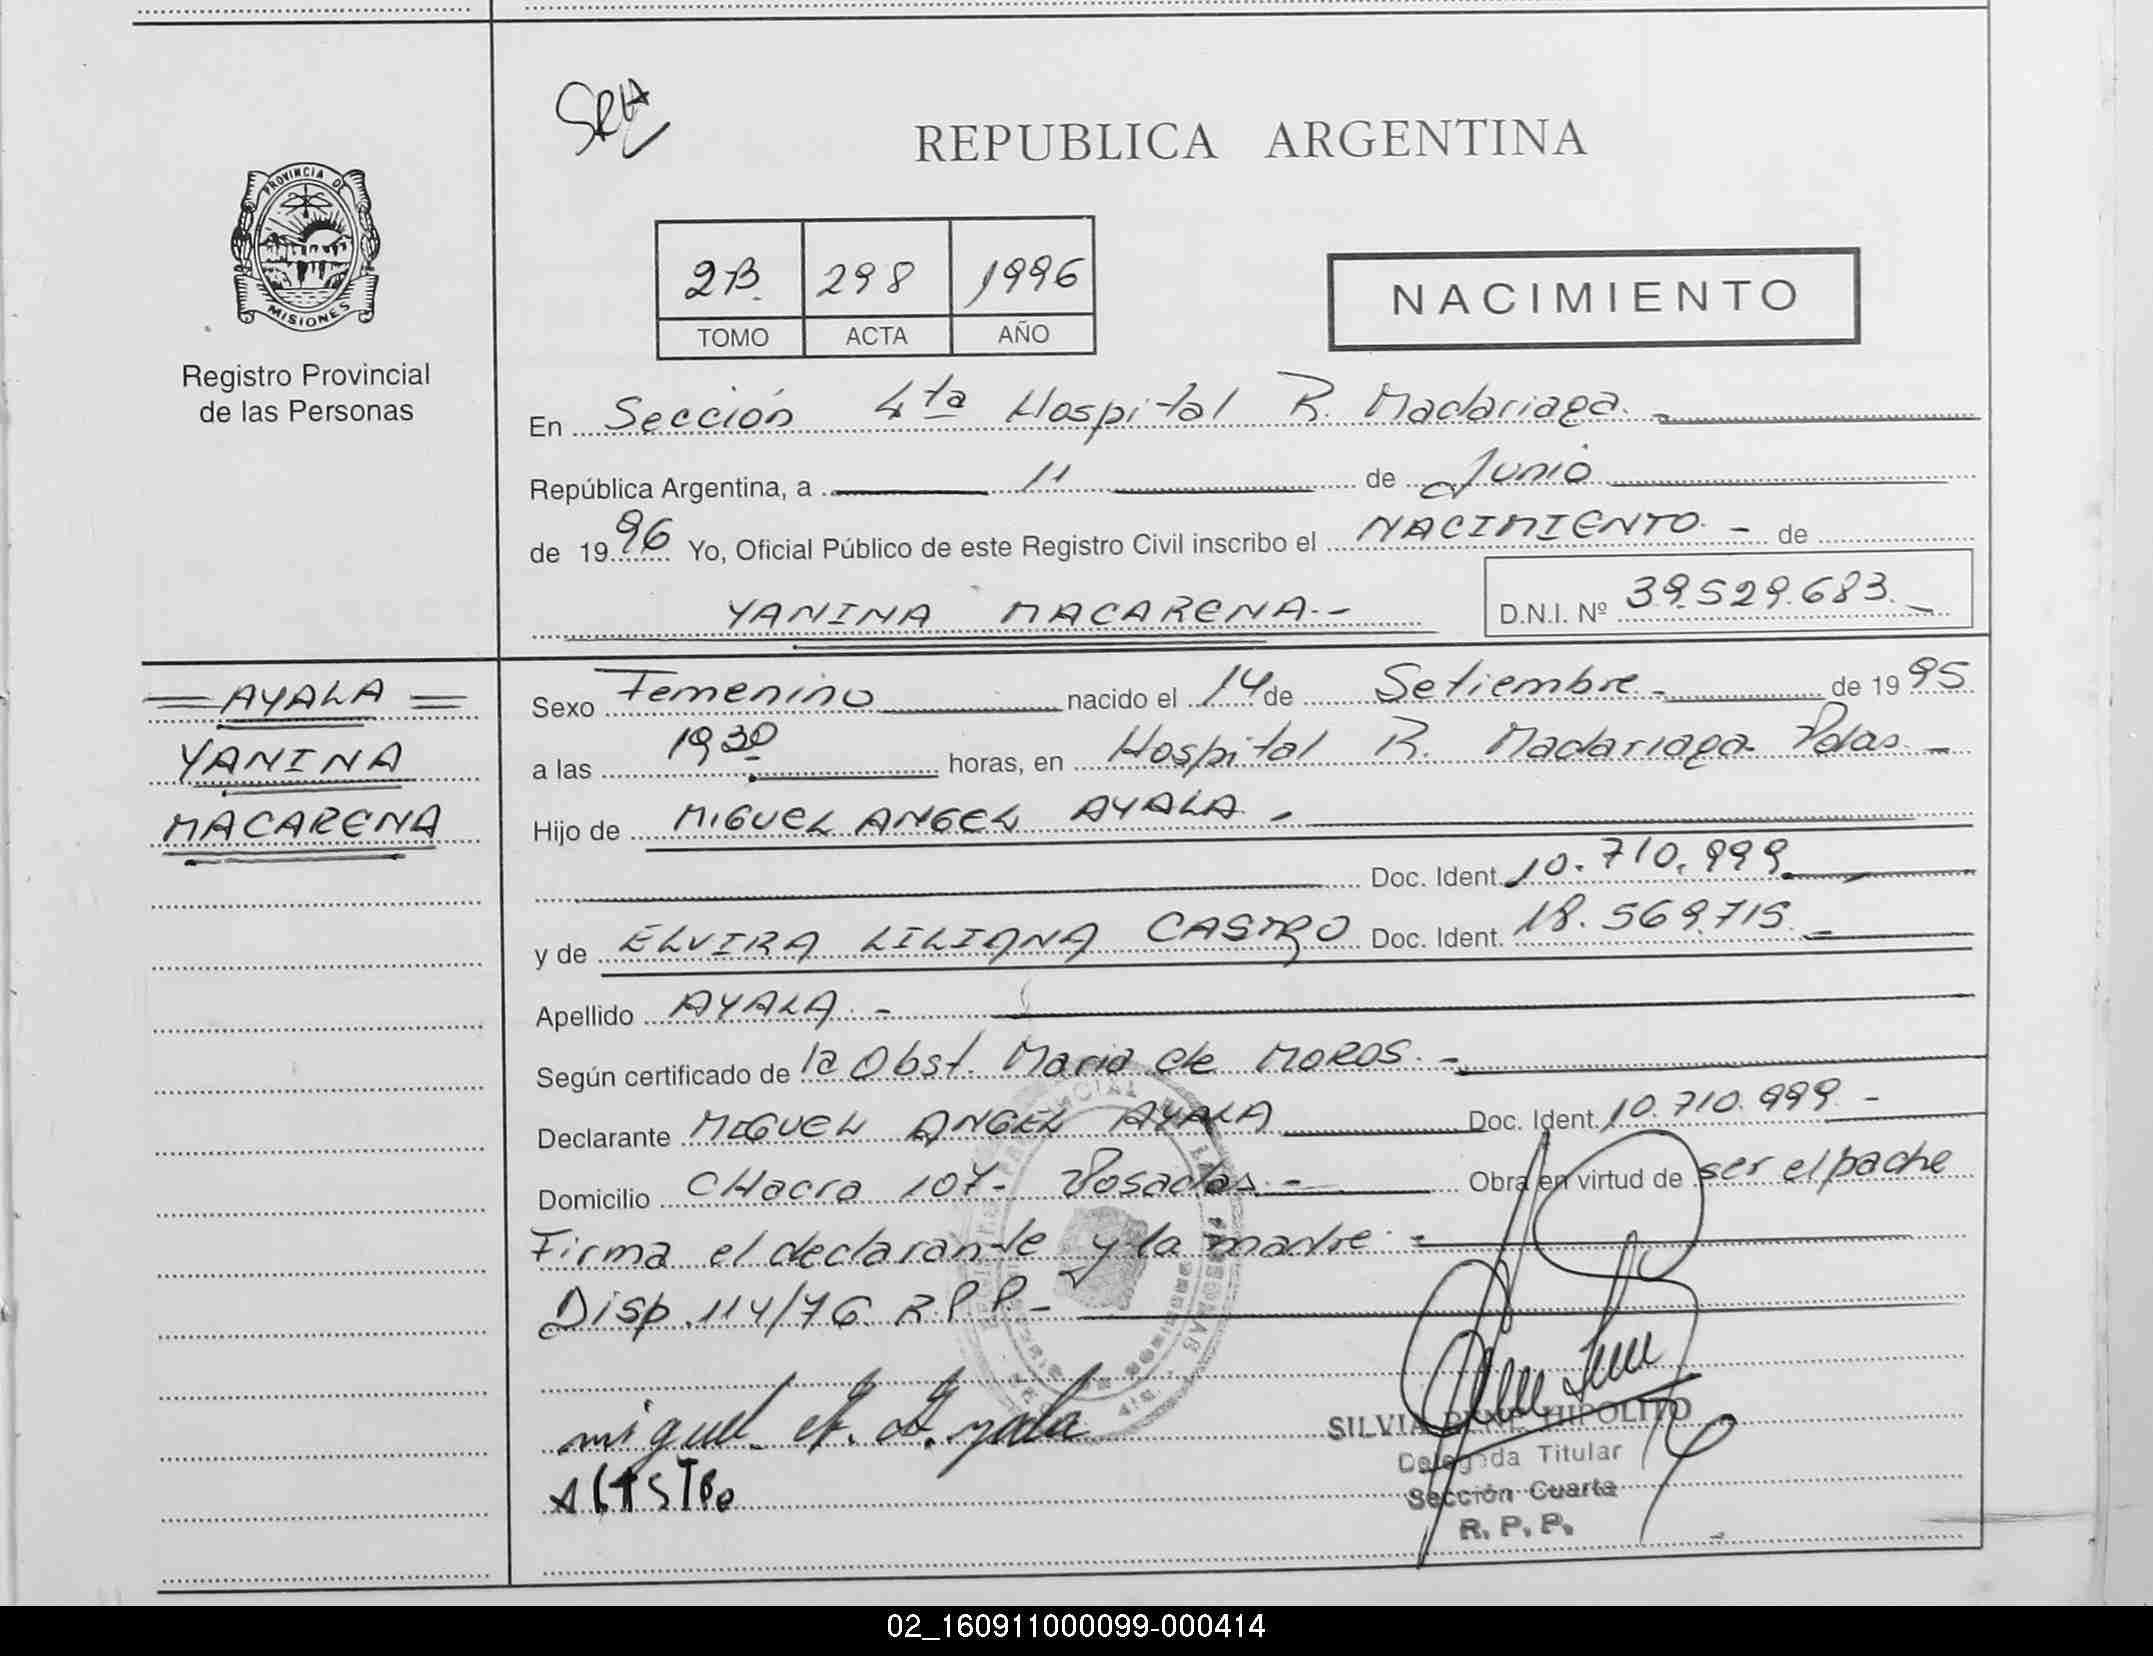 SRH
REPUBLICA ARGENTINA
PROVINCIA DE
MISIONES
Registro Provincial
de las Personas
2B. 298 1996
TOMO ACTA AÑO
NACIMIENTO
En Sección 4ta Hospital R. Madariaga.-
República Argentina, a 11 de Junio
de 1996 Yo, Oficial Público de este Registro Civil inscribo el NACIMIENTO - de
YANINA MACARENA.- D.N.I. Nº 39.529.683.-
= AYALA =
YANINA
MACARENA
Sexo Femenino nacido el 14 de Setiembre - de 1995
a las 19,30 horas, en Hospital R. Madariaga Pdas -
Hijo de MIGUEL ANGEL AYALA -
Doc. Ident. 10.710.999.
y de ELVIRA LILIANA CASTRO Doc. Ident. 18.569.715.-
Apellido AYALA.-
Según certificado de la Obst. Maria de MOROS.-
Declarante MIGUEL ANGEL AYALA Doc. Ident. 10.710.999.-
Domicilio CHacra 107- Posadas.- Obra en virtud de ser el padre
Firma el declarante y la madre.-
Disp. 114/76 R.P.P.-
miguel A. Ayala
SILVIA HIPOLITO
Delegada Titular
Sección Cuarta
R. P. P.
02_160911000099-000414